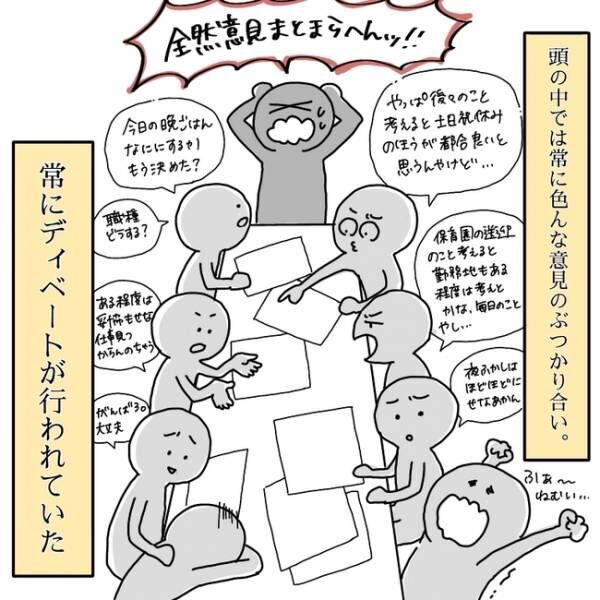 頭の中では常に色んな意見のぶつかり合い。
全然意見まとまらへんッ!!
やっぱ後々のこと
考えると土日祝休み
のほうが都合良いと
思うんやけど…
今日の晩ごはん
なににするか!
もう決めた?
職種
どうする?
保育園の送迎
のこと考えると
勤務地もある
程度は考えと
かな、毎日のこと
やし…
ある程度は
妥協もせな
仕事見つ
からんのちゃう
夜ふかしは
ほどほどに
せなあかん
がんばろ。
大丈夫
ふぁ〜
ねむい…
常にディベートが行われていた